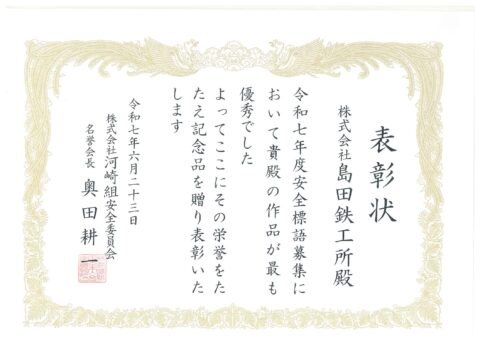 表彰状
株式会社島田鉄工所殿
令和七年度安全標語募集に
おいて貴殿の作品が最も
優秀でした
よってここにその栄誉をた
たえ記念品を贈り表彰いた
します
令和七年六月二十三日
株式会社河崎組安全委員会
名誉会長 奥田耕一